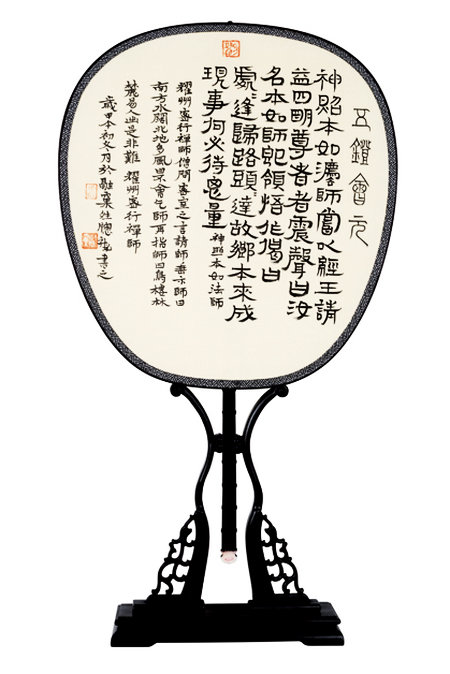 五鐙會元
神照本如灋師嘗以經王請
益四明尊者者震聲曰汝
名本如師即領悟作偈曰
處〻逢歸路頭〻達故鄉本來成
現事何必待思量 神照本如法師
耀州密行禪師僧問密室之言請師垂示師曰
南方水闊北地多風曰不會乞師再指師曰鳥棲林
麓易人出是非難 耀州密行禪師
歲甲午初冬月於融書之